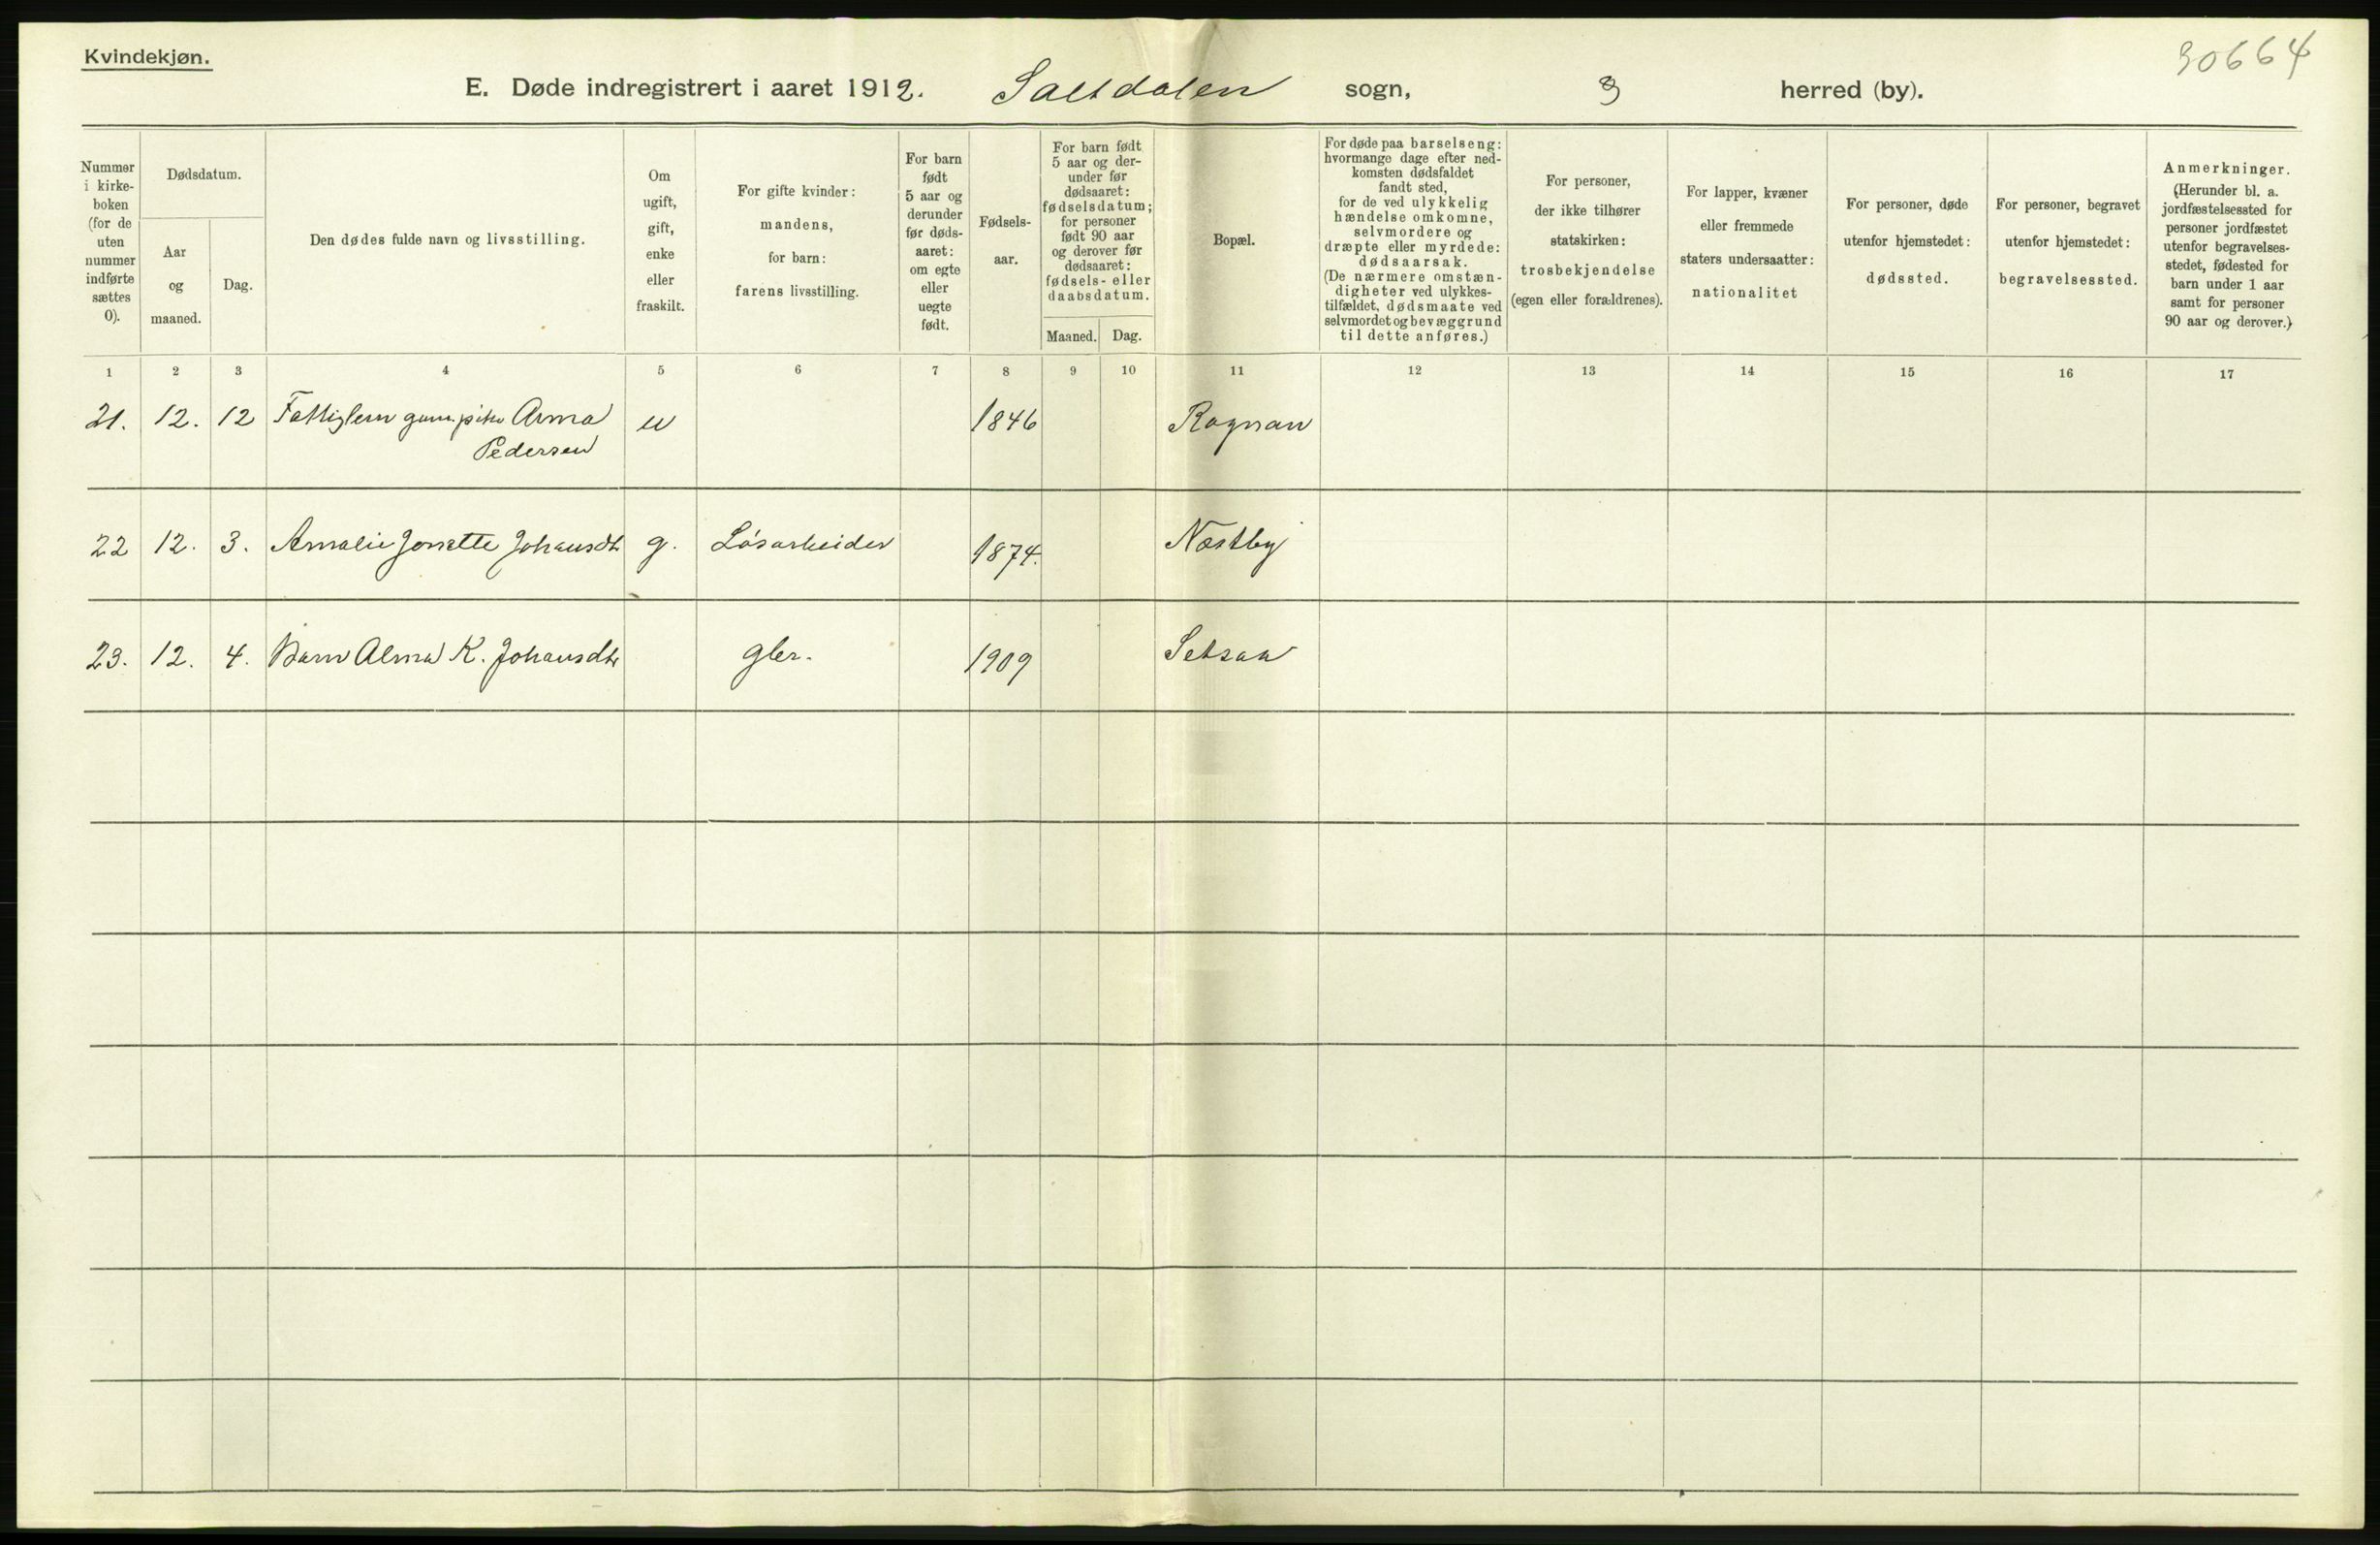 Kvindekjøn.
30664
E. Døde indregistrert i aaret 1912. Saltdalen sogn, 3 herred (by).
Nummer
i kirke-
boken
(for de
uten
nummer
indførte
sættes
0).
Dødsdatum.
Aar
og
maaned.
Dag.
Den dødes fulde navn og livsstilling.
Om
ugift,
gift,
enke
eller
fraskilt.
For gifte kvinder:
mandens,
for barn:
farens livsstilling.
For barn
født
5 aar og
derunder
før døds-
aaret:
om egte
eller
uegte
født.
Fødsels-
aar.
For barn født
5 aar og der-
under før
dødsaaret:
fødselsdatum;
for personer
født 90 aar
og derover før
dødsaaret:
fødsels- eller
daabsdatum.
Maaned. Dag.
Bopæl.
For døde paa barselseng:
hvormange dage efter ned-
komsten dødsfaldet
fandt sted,
for de ved ulykkelig
hændelse omkomne,
selvmordere og
dræpte eller myrdede:
dødsaarsak.
(De nærmere omstæn-
digheter ved ulykkes-
tilfældet, dødsmaate ved
selvmordet og bevæggrund
til dette anføres.)
For personer,
der ikke tilhører
statskirken:
trosbekjendelse
(egen eller forældrenes).
For lapper, kvæner
eller fremmede
staters undersaatter:
nationalitet
For personer, døde
utenfor hjemstedet:
dødssted.
For personer, begravet
utenfor hjemstedet:
begravelsessted.
Anmerkninger.
(Herunder bl. a.
jordfæstelsessted for
personer jordfæstet
utenfor begravelses-
stedet, fødested for
barn under 1 aar
samt for personer
90 aar og derover.)
1 2 3 4 5 6 7 8 9 10 11 12 13 14 15 16 17
21. 12. 12 Fattiglem gam. pike Anna u 1846 Rognan
Pedersen
22 12. 3. Amalie Jonette Johansdt g. Løsarbeider 1874. Næstby
23. 12. 4. Barn Alma K. Johansdtr gbr. 1909 Setsaa